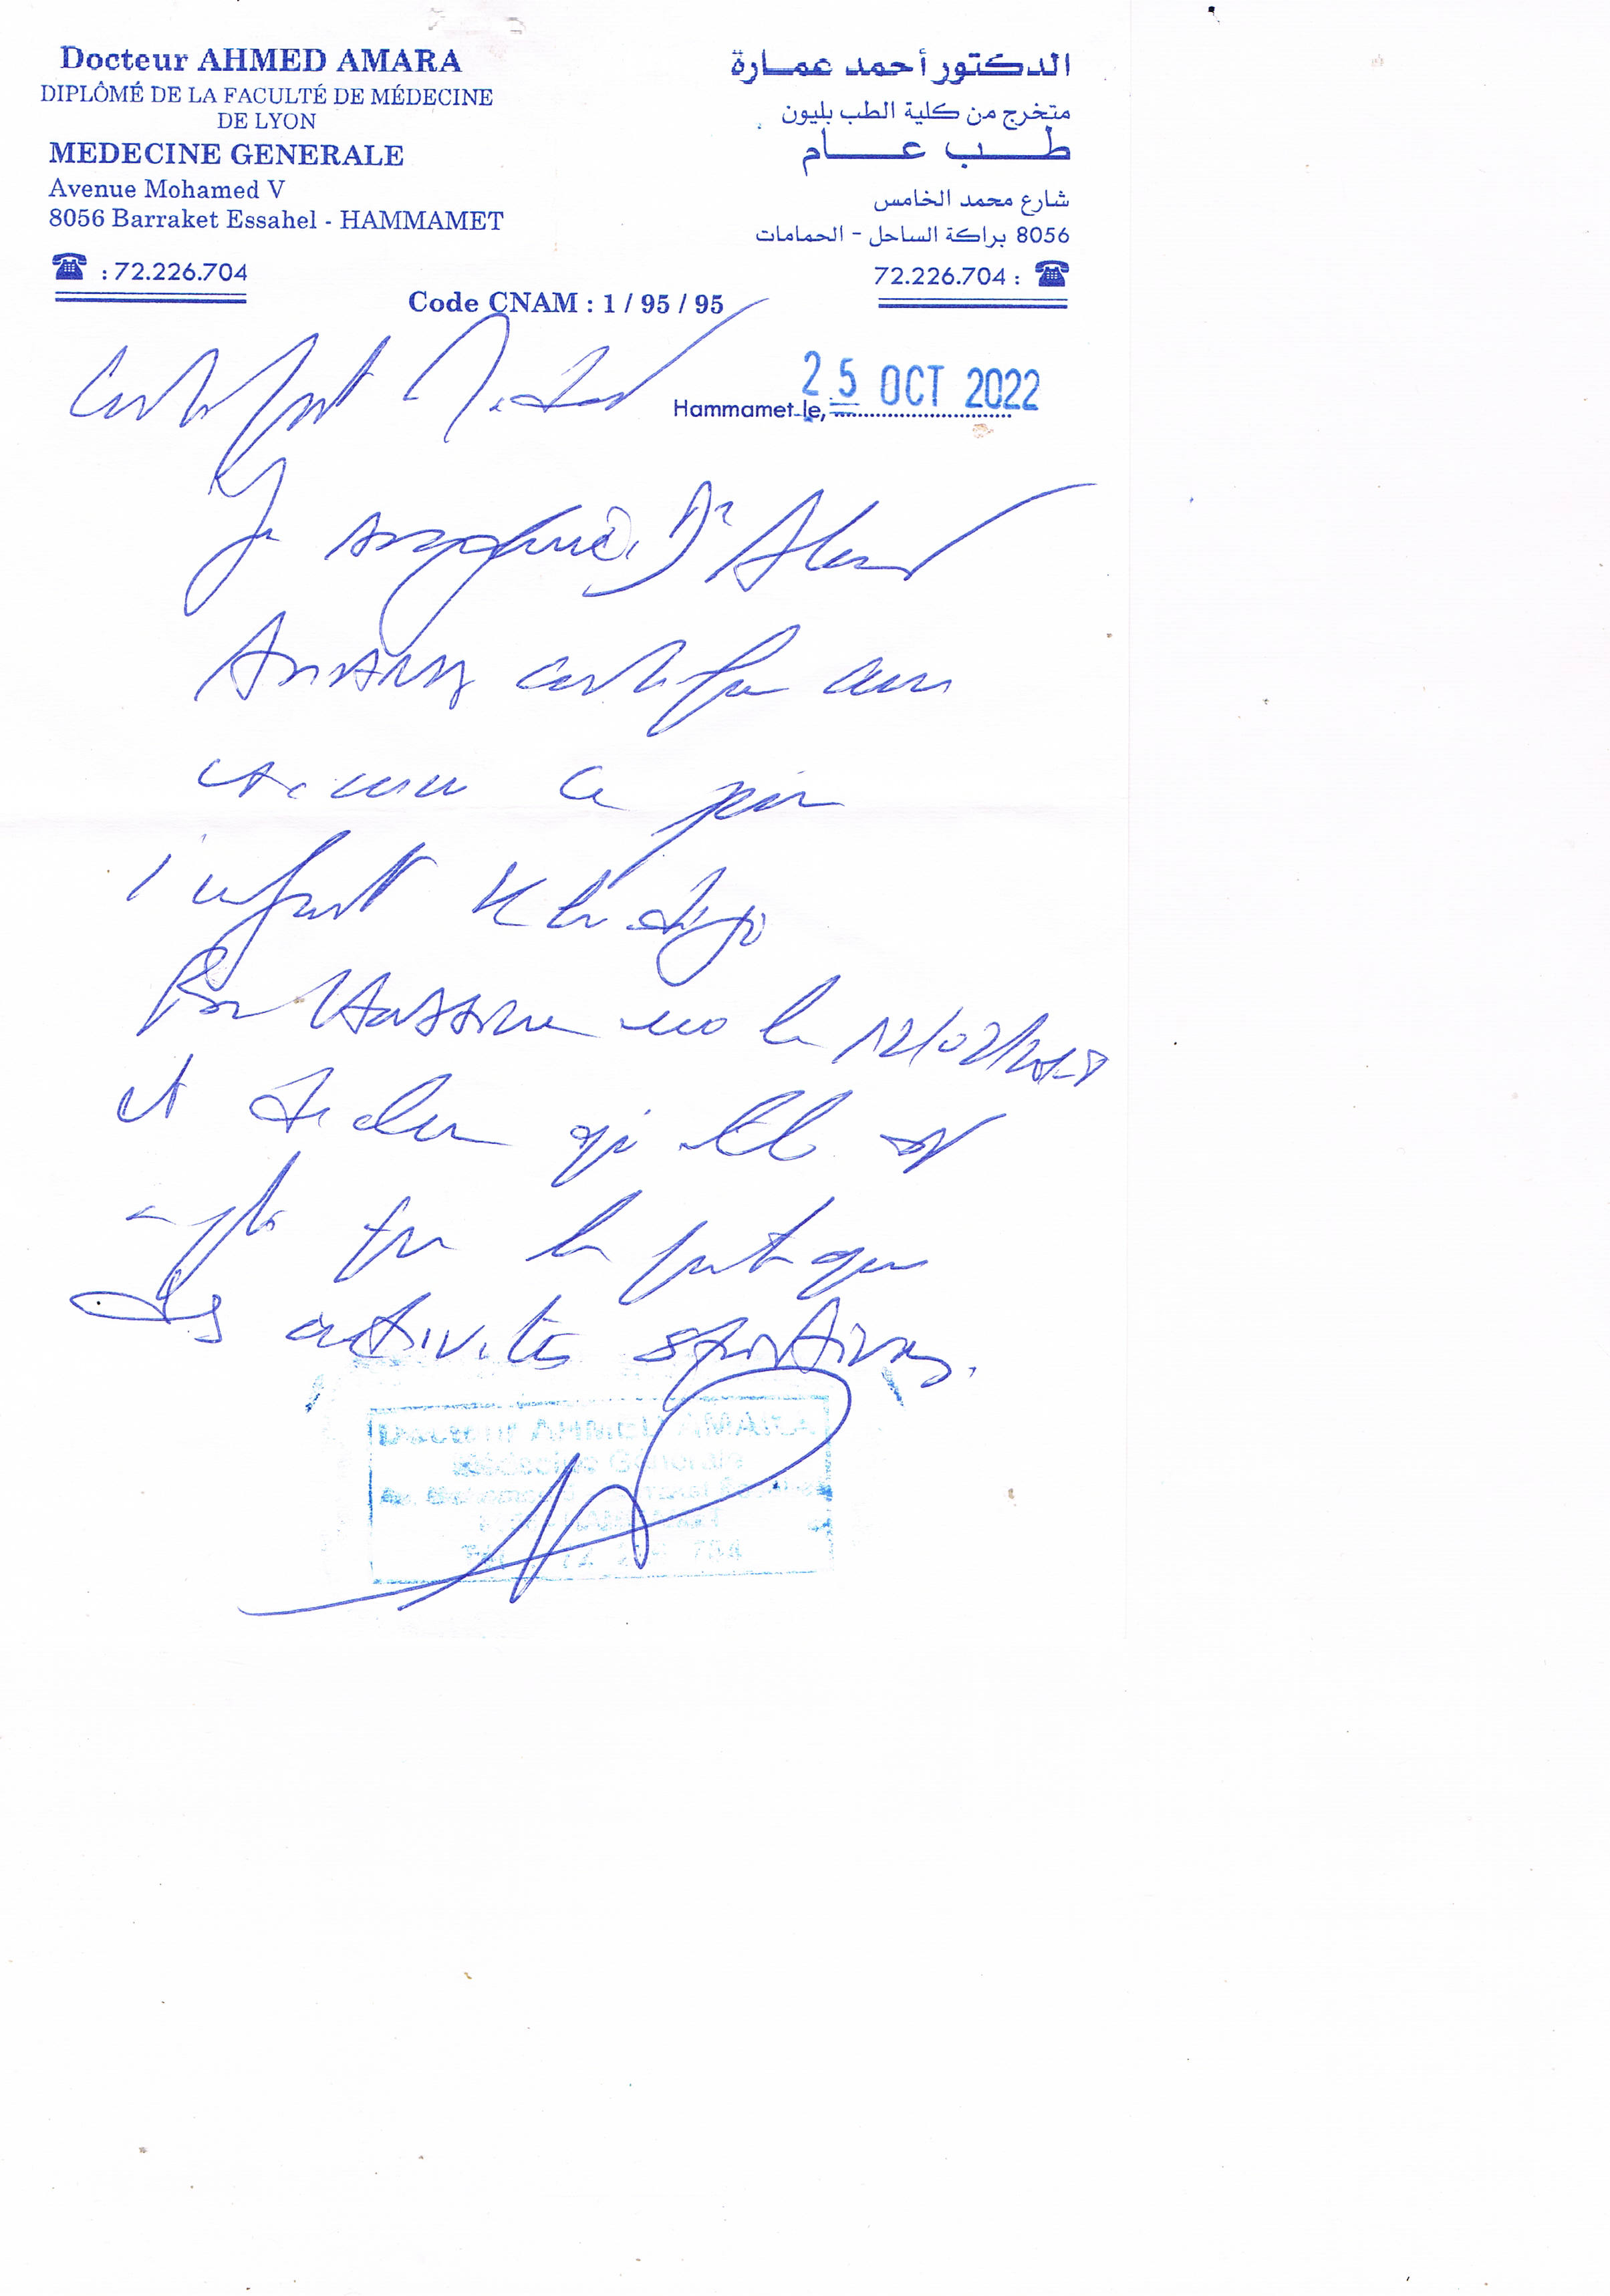 Docteur AHMED AMARA
DIPLÔMÉ DE LA FACULTÉ DE MÉDECINE
DE LYON
MEDECINE GENERALE
Avenue Mohamed V
8056 Barraket Essahel - HAMMAMET
☎ : 72.226.704
الدكتور أحمد عمارة
متخرج من كلية الطب بليون
طب عام
شارع محمد الخامس
8056 براكة الساحل - الحمامات
72.226.704 : ☎
Code CNAM : 1 / 95 / 95
Certificat Médical
Hammamet le, 25 OCT 2022
Je soussigné, Dr Ahmed
Amara certifie avoir
examiné ce jour
l'enfant
Ben Hassine née le 12/02/2018
et déclare qu'elle est
apte pour la pratique
des activités sportives.
Docteur AHMED AMARA
Médecine Générale